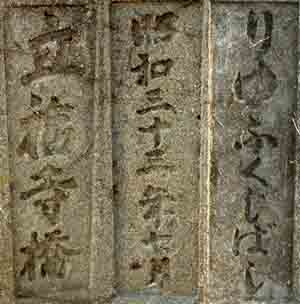 りゆふくじばし
昭和三十三年七月
立福寺橋